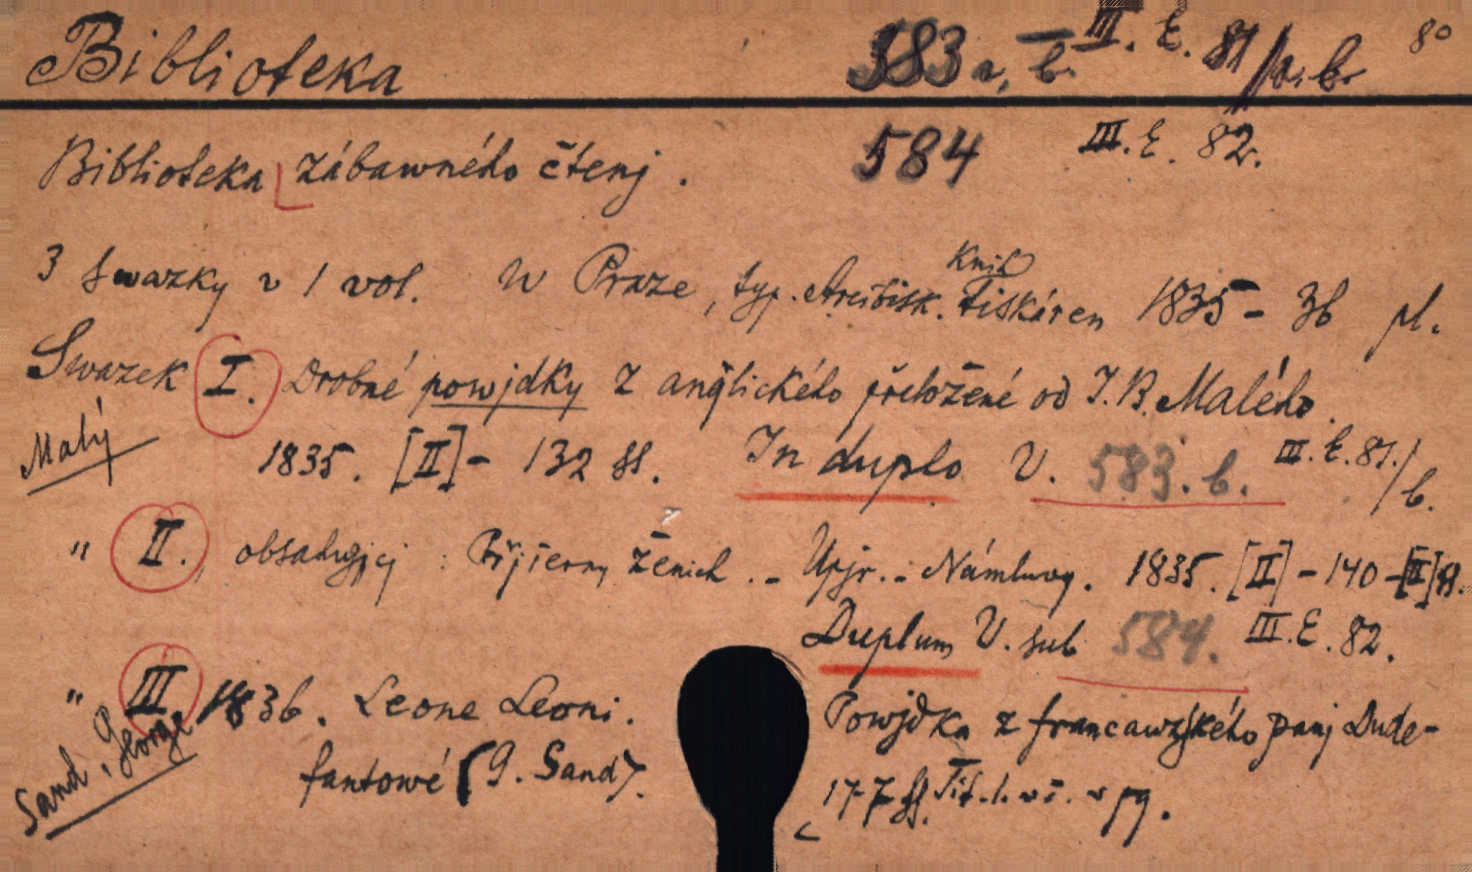 Biblioteka 583 a, b. III. E. 81/a. b. 8°
Biblioteka zábawného čtenj. 584 III. E. 82.
3 swazky v 1 vol. W Praze, typ. Arcibisk. Knih Tiskáren 1835-36 pl.
Swazek I. Drobné powjdky z anglického přeložené od J. B. Malého.
Malý 1835. [II] - 132 ss. In duplo V. 583. b. III. E. 81./b.
" II., obsahugjcj : Přjjemný ženich. - Upjr. - Námluwy. 1835. [II] - 140 - [II] ss.
Duplum V. sub 584. III. E. 82.
" III 1836. Leone Leoni. Powjdka z francauzského panj Dude-
Sand, George fantowé (G. Sand). 177 ss. Tit. l.